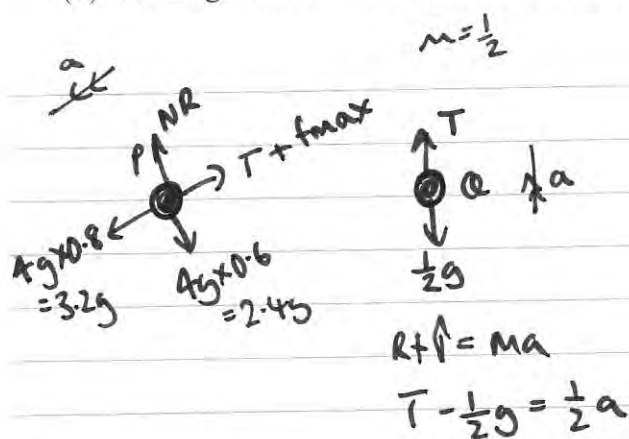 μ=1/2
a
P NR
T + fmax
4g×0.8
=3.2g
4g×0.6
=2.4g
T
Q a
1/2g
R(↑) = ma
T - 1/2g = 1/2a